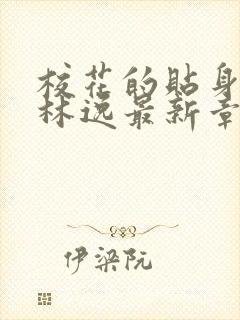 校花的贴身
林逸最新章
伊梁阮